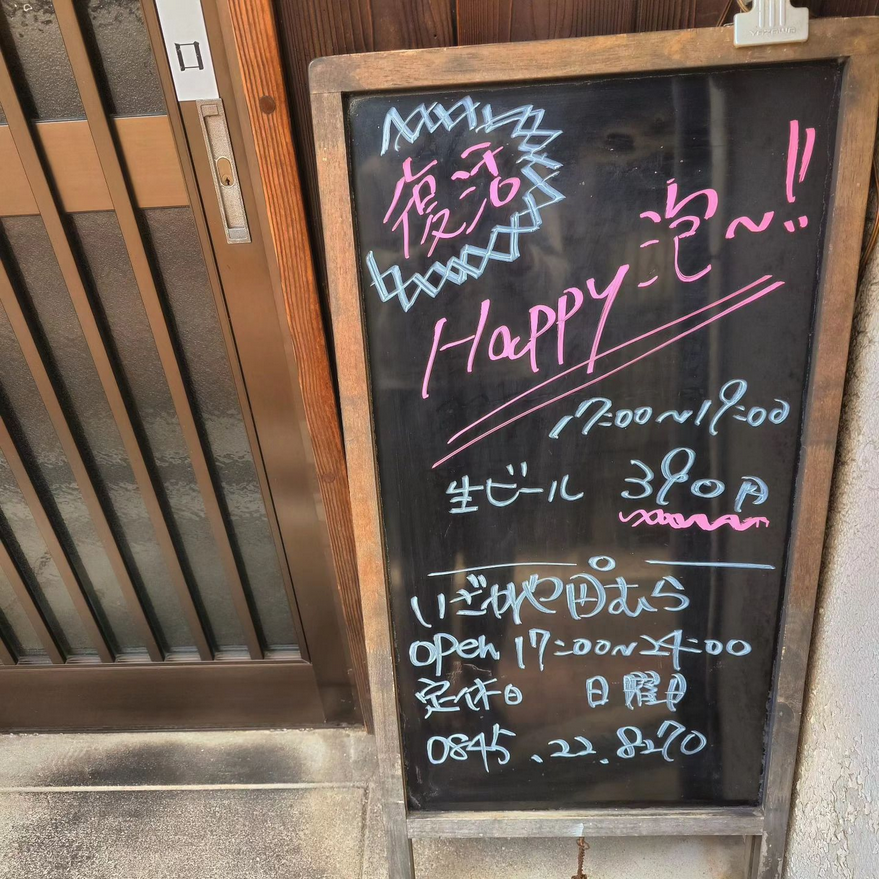 復活
Happy 泡～!!
17:00～19:00
生ビール 390円
いざかや田むら
open 17:00～24:00
定休日 日曜日
0845.22.8270